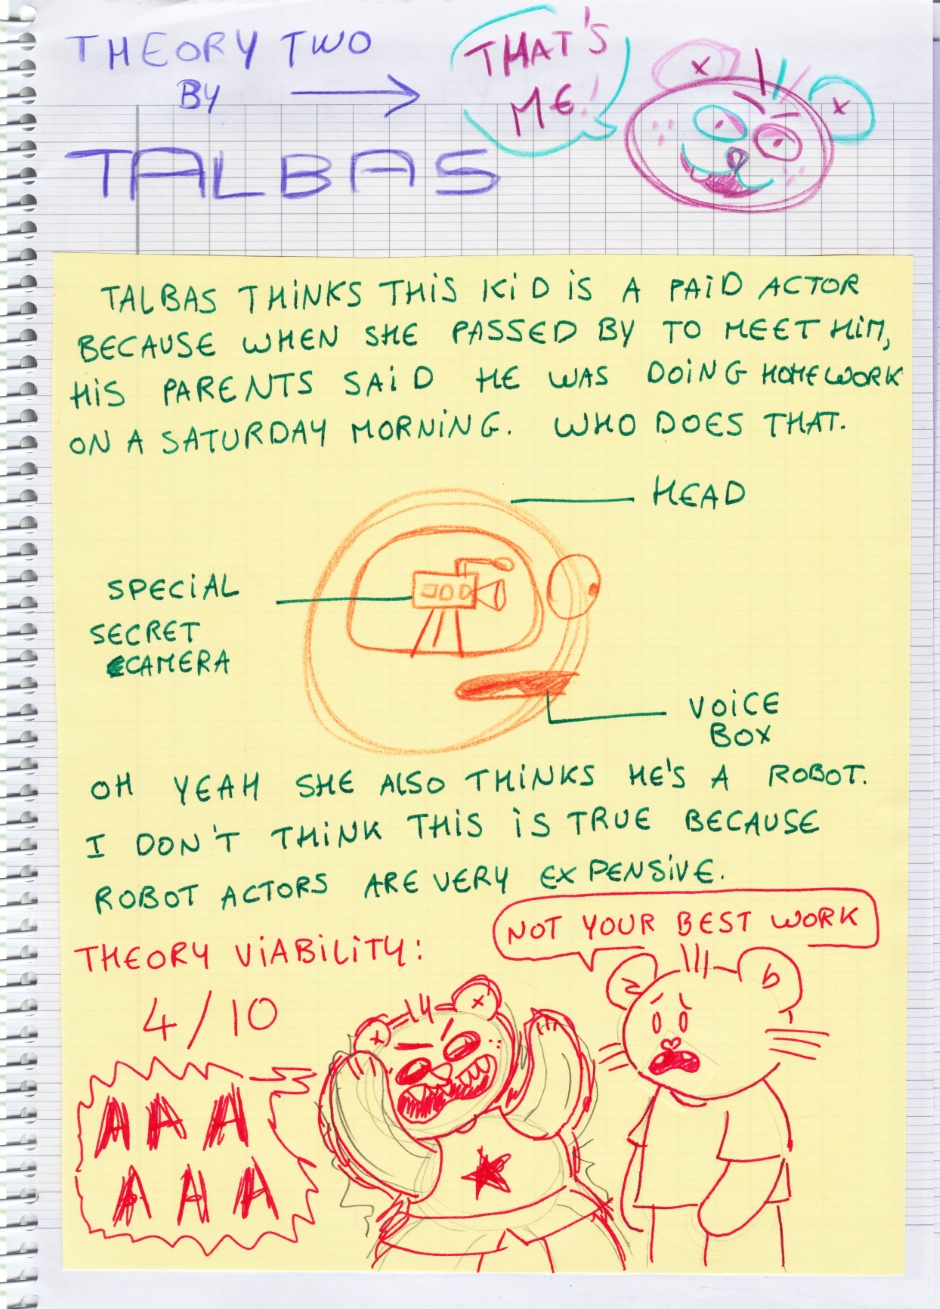 THEORY TWO
BY
TALBAS
THAT'S
ME!
TALBAS THINKS THIS KID IS A PAID ACTOR
BECAUSE WHEN SHE PASSED BY TO MEET HIM,
HIS PARENTS SAID HE WAS DOING HOMEWORK
ON A SATURDAY MORNING. WHO DOES THAT.
HEAD
SPECIAL
SECRET
CAMERA
VOICE
BOX
OH YEAH SHE ALSO THINKS HE'S A ROBOT.
I DON'T THINK THIS IS TRUE BECAUSE
ROBOT ACTORS ARE VERY EXPENSIVE.
NOT YOUR BEST WORK
THEORY VIABILITY:
4/10
AAA
AAA